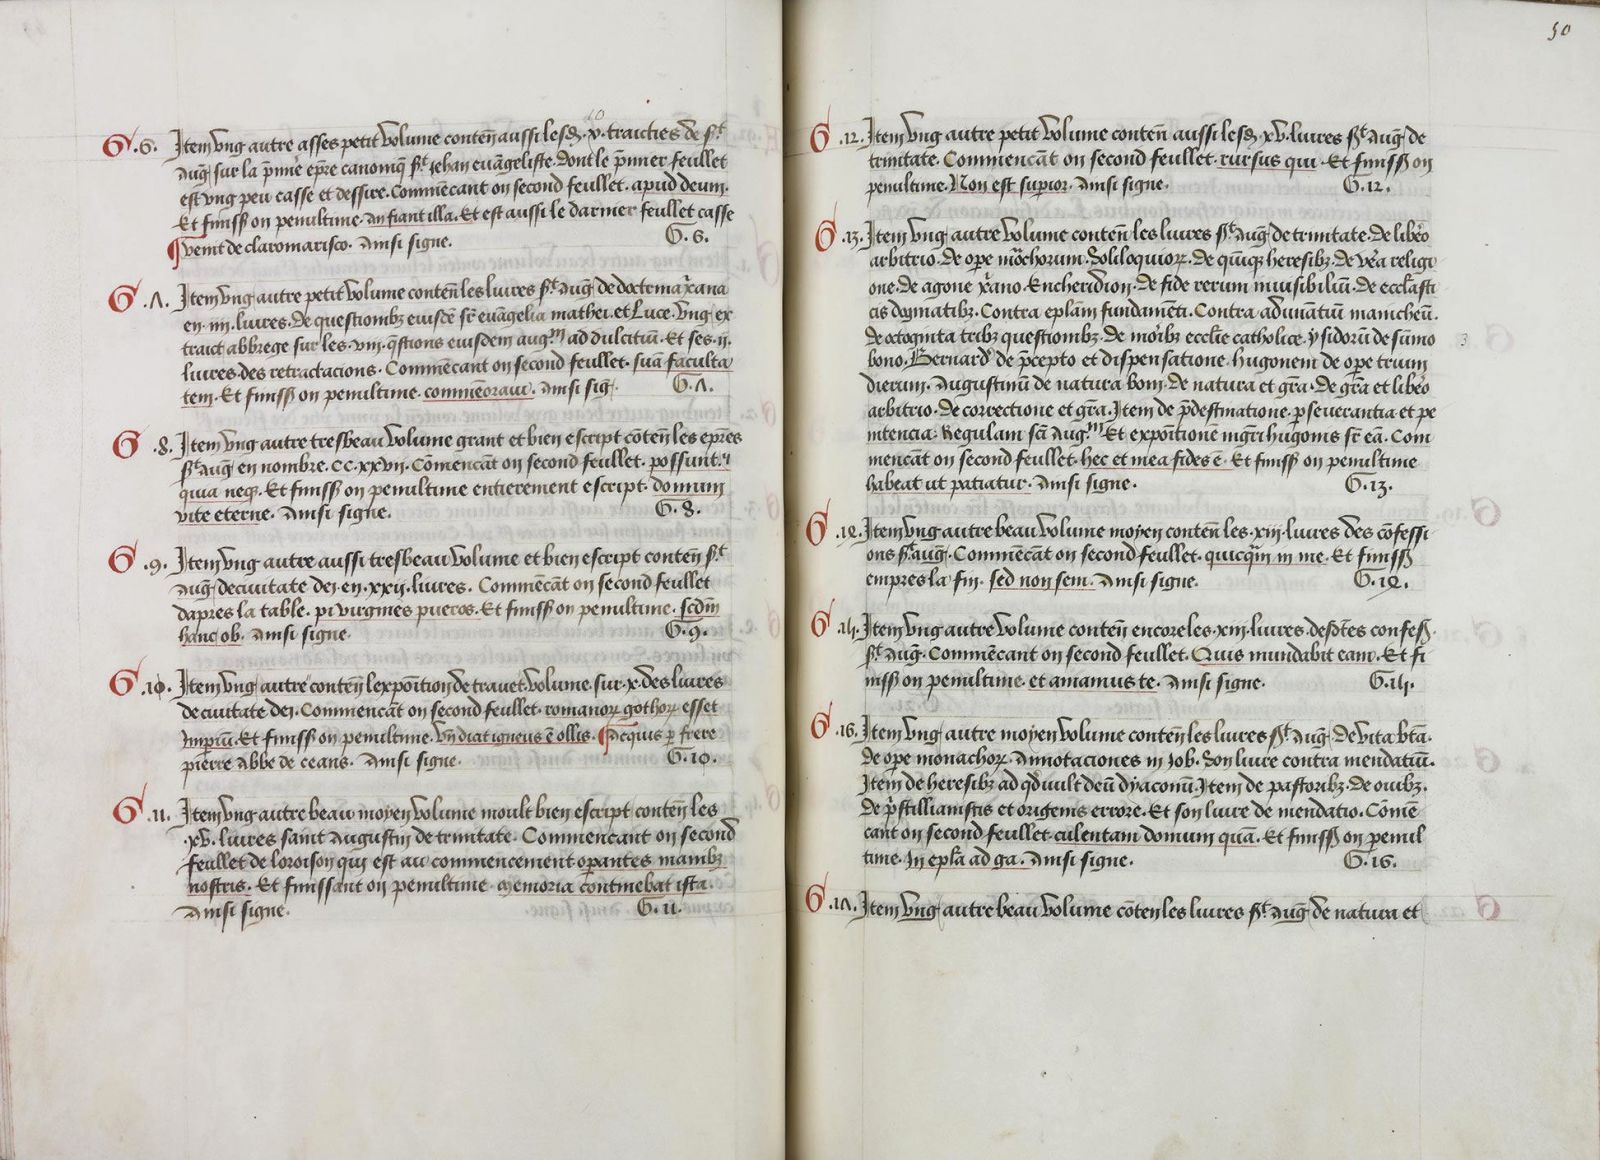 G .6. Item Vng autre asses petit Volume conten̄ aussi lesd. x. traicties de st
auḡ sur la p̄mie ep̄re canonīq̄ st Jehan euāgeliste. dont le p̄mier feullet
est vng peu casse et dessire. Commēcant on second feullet. apud deum.
Et finiss̄ on penultime. an fiant illa. Et est aussi le darnier feullet casse
¶ Veint de claromarisco. Ainsi signe. G. 6.
G .Λ. Item Vng autre petit Volume conten̄ les liures st Auḡ de doctrina xana
en .iiij. liures. de questionibz eiusdē sr̄ euāgelia mathei. et Luce. Vng ex
traict abbrege sur les .viij. q̄stions eiusdem augm ad dulcitiū. Et ses .ij.
liures. des retractacions. Commēcant on second feullet. suā faculta
tem. Et finiss̄ on penultime. commēoraui. Ainsi siḡ. G. Λ.
G .8. Item Vng autre tresbeau Volume grant et bien escript cōten̄ les ep̄res
st Auḡ en nombre. CC. xxvij. Cōmencāt on second feullet. possunt. q
quia neq. Et finiss̄ on penultime entierement escript. domum
vite eterne. Ainsi signe. G. 8.
G .9. Item Vng autre aussi tresbeau Volume et bien escript conten̄ st
Auḡ de ciuitate dei. en. xxij. liures. Commēcāt on second feullet
dapres la table. pi virgines pueros. Et finiss̄ on penultime. scdm̄
hanc ob. Ainsi signe. G. 9.
G .10. Item Vng autre conten̄ lexposition de trauet. Volume. sur .x. des liures
de ciuitate dei. Commencāt on second feullet. romanoꝝ gothoꝝ esset
Imperiū. Et finiss̄ on penultime. Vn dicat igneus ē ollis. ¶ Acquis p frere
pierre Abbe de ceans. Ainsi signe. G. 10.
G .11. Item Vng autre beau moyen Volume moult bien escript conten̄ les
.xv. liures saint Augustin de trinitate. Commencant on second
feullet de loroison qui est au commencement operantes manibz
nostris. Et finissant on penultime. memoria continebat ista.
Ainsi signe. G. 11.
50
G .12. Item Vng autre petit Volume conten̄ aussi lesd. xv. liures st Auḡ de
trinitate. Commencāt on second feullet. rursus qui. Et finiss̄ on
penultime. Non est superior. Ainsi signe. G. 12.
G .13. Item Vng autre Volume conten̄ les liures st Auḡ de trinitate. de libero
arbitrio. de ope mōchorum. Soliloquioꝝ. de quinqꝫ heresibz. de vera religi
one. de agone xano. Encheridion. de fide rerum inuisibiliū. de eccl̄asti
cis dogmatibz. Contra eplam fundamēti. Contra aduīnātiū manicheū.
de octoginta tribz questionibz. de moribz ecclie catholice. ysidorū de sūmo
bono. Bernard de p̄cepto et dispensatione. hugonem de ope trium
dierum. Augustinū de natura boni. de natura et gr̄a. de gr̄a et libero
arbitrio. de correctione et gr̄a. Item de p̄destinatione. pseuerantia et pe
nitencia. Regulam sc̄i Augm Et expōitionem mgr̄i hugonis sr̄ eā. Com
mencāt on second feullet. hec et mea fides ē. Et finiss̄ on penultime.
habeat ut patiatur. Ainsi signe. G. 13.
G .14. Item Vng autre beau Volume moyen conten̄ les .xiij. liures des cōfessi
ons st auḡ. Commēcāt on second feullet. quicquā in me. Et finiss̄
empres la fin. sed non sem. Ainsi signe. G. 14.
G .15. Item Vng autre Volume conten̄ encore les .xiij. liures. desdtes confess̄.
st Auḡ. Commēcant on second feullet. Quis mundabit eam. Et fi
niss̄ on penultime. et amamus te. Ainsi signe. G. 15.
G .16. Item Vng autre moyen Volume conten̄ les liures st Auḡ de Vita bt̄a.
de ope monachoꝝ. Annotaciones in Job. Son liure contra mendatiū.
Item de heresibz ad qd̄ uult deū dyaconū Item de pastoribz. de ouibz.
de p̄stillianistis et origenis errore. Et son liure de mendatio. Cōmē
cant on second feullet. culentam domum quā. Et finiss̄ on penul
time. In epla ad ga. Ainsi signe. G. 16.
G .1Λ. Item Vng autre beau Volume cōten̄ les liures st Auḡ de natura et